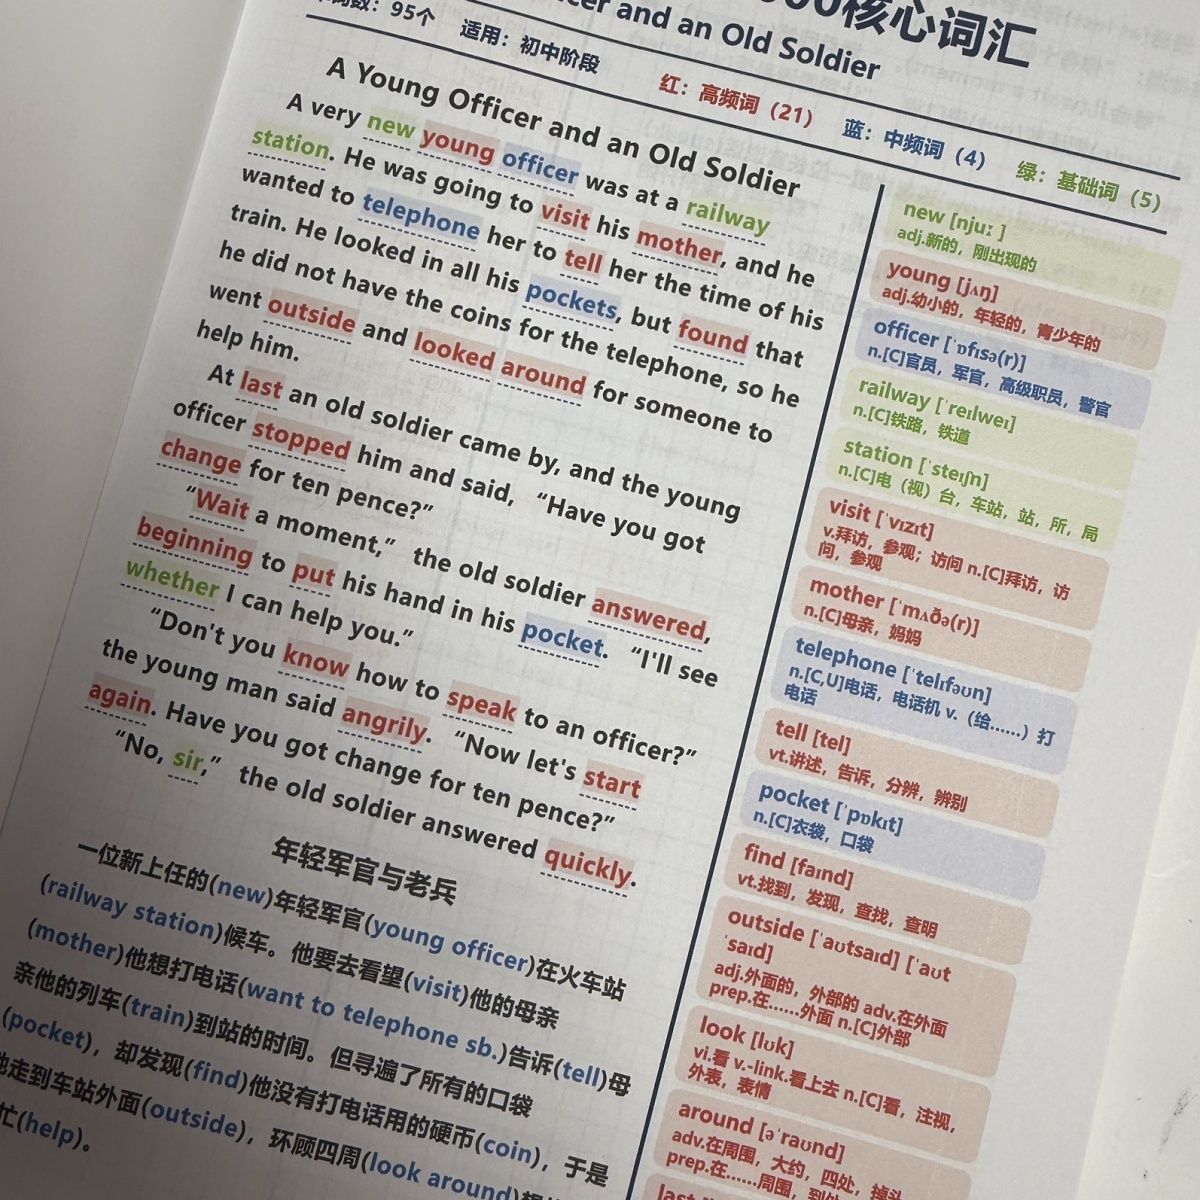 核心词汇
and an Old Soldier
词数：95个 适用：初中阶段 红：高频词（21） 蓝：中频词（4） 绿：基础词（5）
A Young Officer and an Old Soldier
A very new young officer was at a railway
station. He was going to visit his mother, and he
wanted to telephone her to tell her the time of his
train. He looked in all his pockets, but found that
he did not have the coins for the telephone, so he
went outside and looked around for someone to
help him.
At last an old soldier came by, and the young
officer stopped him and said, “Have you got
change for ten pence?”
“Wait a moment,” the old soldier answered,
beginning to put his hand in his pocket. “I'll see
whether I can help you.”
“Don't you know how to speak to an officer?”
the young man said angrily. “Now let's start
again. Have you got change for ten pence?”
“No, sir,” the old soldier answered quickly.
年轻军官与老兵
一位新上任的(new)年轻军官(young officer)在火车站
(railway station)候车。他要去看望(visit)他的母亲
(mother)他想打电话(want to telephone sb.)告诉(tell)母
亲他的列车(train)到站的时间。但寻遍了所有的口袋
(pocket)，却发现(find)他没有打电话用的硬币(coin)，于是
走到车站外面(outside)，环顾四周(look around)
忙(help)。
new [njuː ]
adj.新的，刚出现的
young [jʌŋ]
adj.幼小的，年轻的，青少年的
officer [ˈɒfɪsə(r)]
n.[C]官员，军官，高级职员，警官
railway [ˈreɪlweɪ]
n.[C]铁路，铁道
station [ˈsteɪʃn]
n.[C]电（视）台，车站，站，所，局
visit [ˈvɪzɪt]
v.拜访，参观；访问 n.[C]拜访，访
问，参观
mother [ˈmʌðə(r)]
n.[C]母亲，妈妈
telephone [ˈtelɪfəʊn]
n.[C,U]电话，电话机 v.（给……）打
电话
tell [tel]
vt.讲述，告诉，分辨，辨别
pocket [ˈpɒkɪt]
n.[C]衣袋，口袋
find [faɪnd]
vt.找到，发现，查找，查明
outside [ˈaʊtsaɪd] [ˈaʊt
ˈsaɪd]
adj.外面的，外部的 adv.在外面
prep.在……外面 n.[C]外部
look [lʊk]
vi.看 v.-link.看上去 n.[C]看，注视，
外表，表情
around [əˈraʊnd]
adv.在周围，大约，四处，掉头
prep.在……周围，到处
last